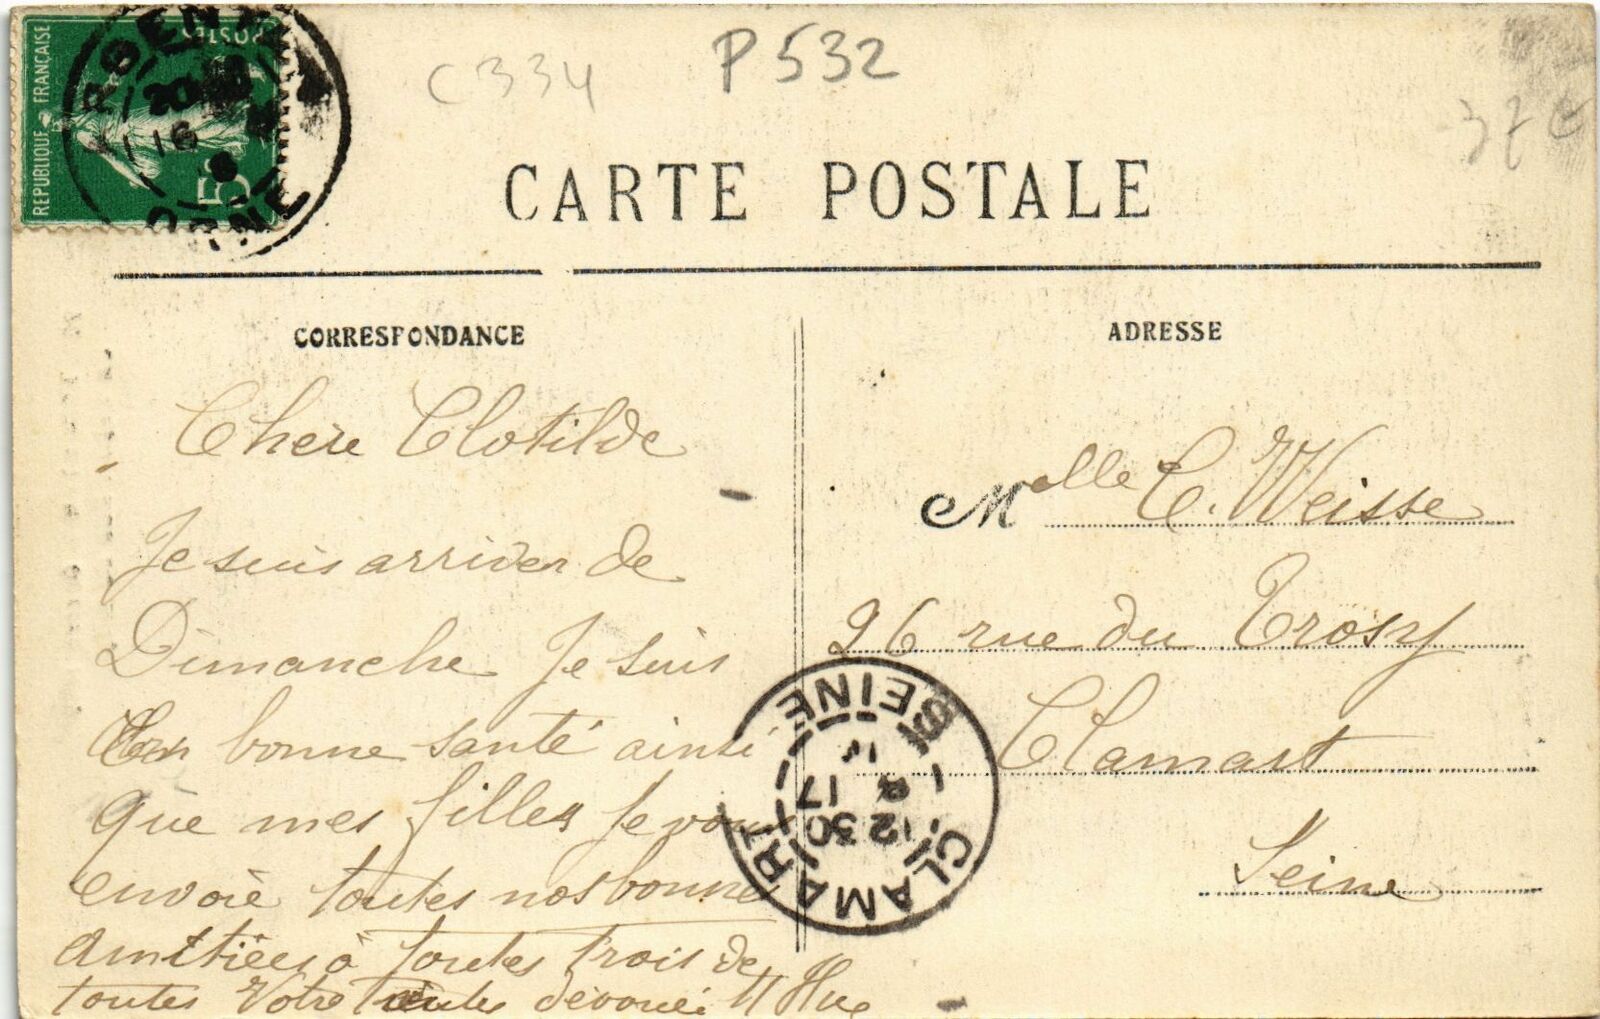 C334
P532
37€
REPUBLIQUE FRANÇAISE
POSTES
ARGENTAN
ORNE
CARTE POSTALE
CORRESPONDANCE
ADRESSE
Chere Clotilde
Je suis arriver de
Dimanche Je suis
En bonne santé ainsi
que mes filles Je vous
envoie toutes nos bonne
amitiées à toutes trois de
toutes Votre toutes dévouée
Melle C. Weisse
26 rue du Trosy
Clamart
Seine
CLAMART
SEINE
12 30
17
8